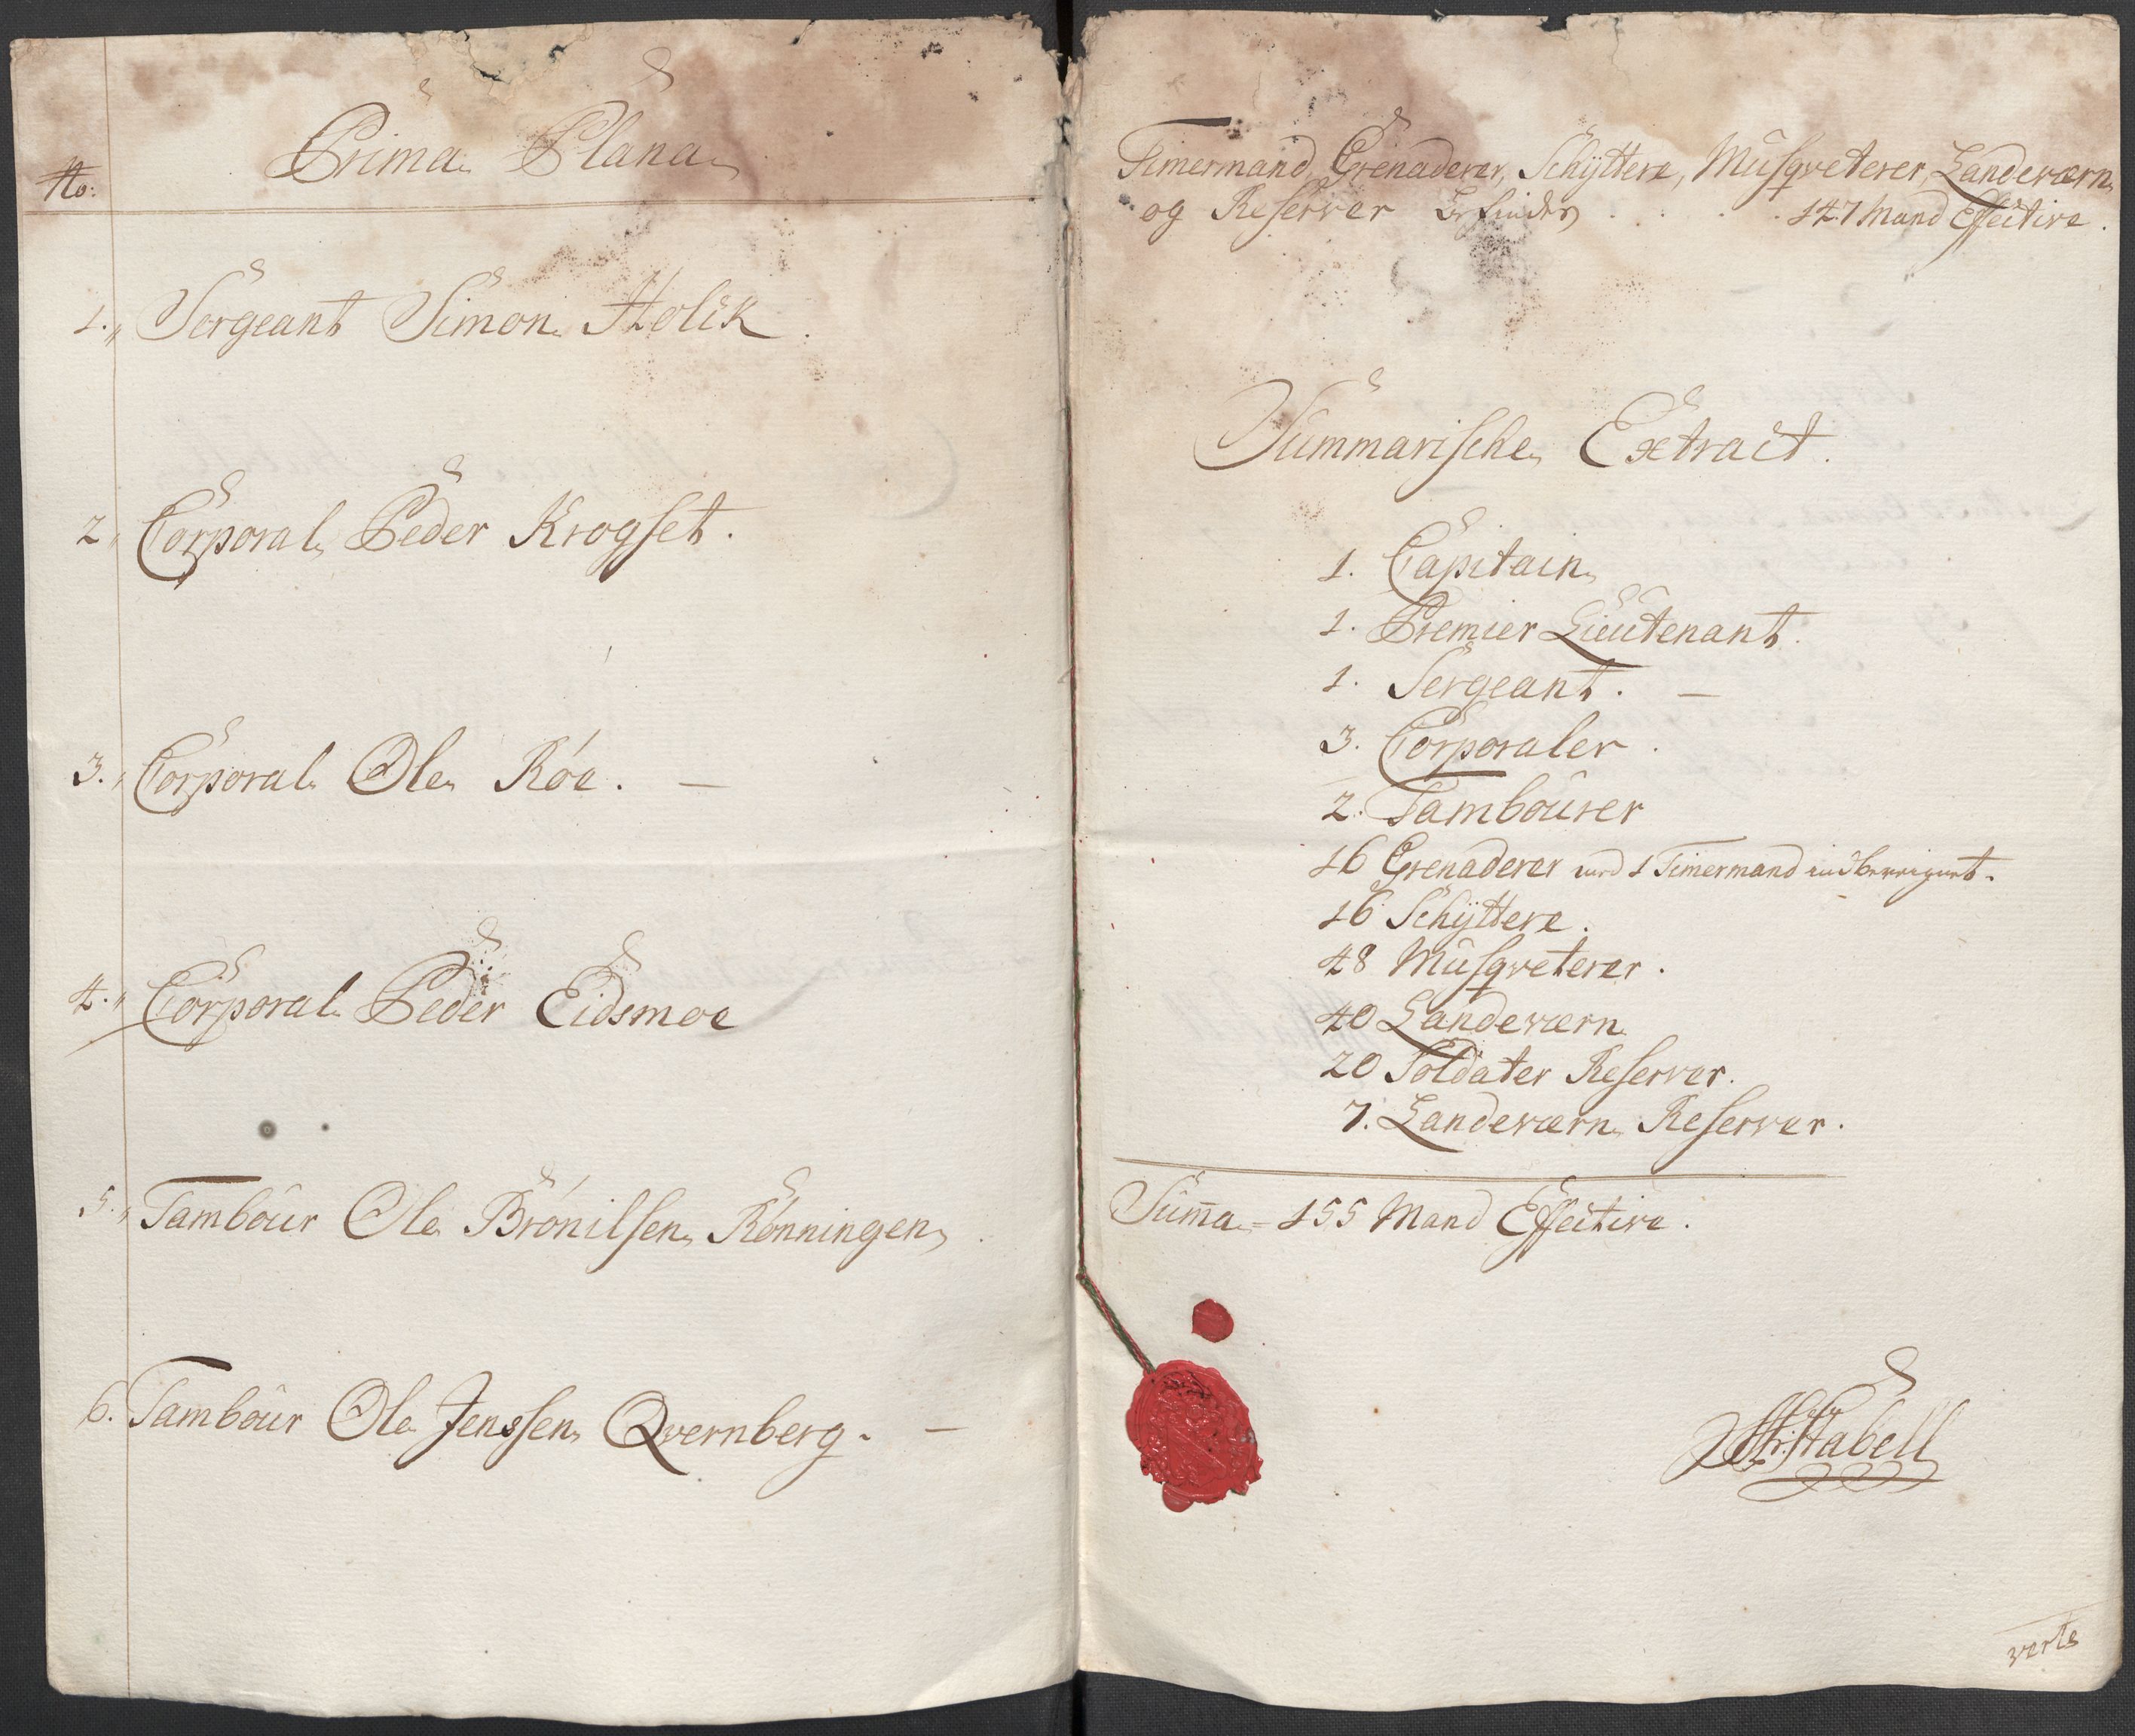 No:
Prima Plana
1. Sergeant Simon Holck
2. Corporal Peder Krogset.
3. Corporal Ole Róe. —
4. Corporal Peder Eidsmoe
5. Tambour Ole Brónilsen Rónningen
6. Tambour Ole Jenssen Qvernberg. —
Timermand, Grenaderer, Schÿttere, Musqveterer, Landeværn
og Reserver befindes . . . . 147 Mand Effective.
Summarische Extract.
1. Capitain
1. Premier Lieutenant.
1. Sergeant. —
3. Corporaler.
2. Tambourer
16 Grenaderer med 1 Timermand indbereignet.
16 Schÿttere.
48 Musqveterer.
40 Landeværn
20 Soldater Reserver.
7. Landeværn Reserver.
Sum̄a = 155 Mand Effective.
Stabell
verte